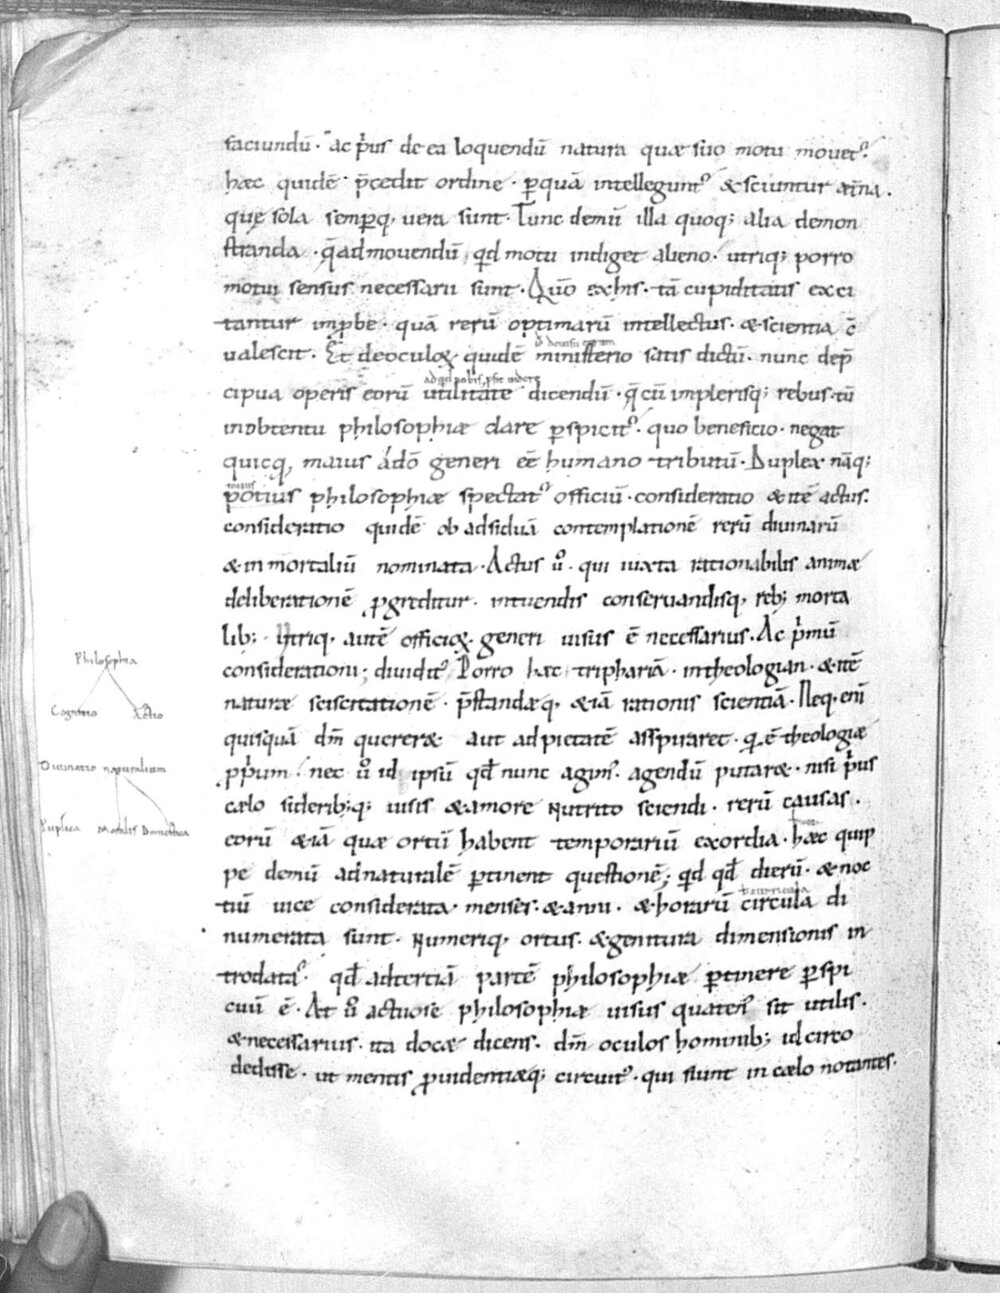 faciundū · ac p̄us de ea loquendū natura quæ suo motu mouet᷑.
hæc quidē p̄cedit ordine · ꝑ quā intellegunt᷑ & sciuntur æt̄na.
quę sola semꝑq; uera sunt · Tunc demū illa quoq; alia demon
stranda · q̄ ad mouendū qđ motu indiget alieno · utriq; porro
motui sensus necessarii sunt · Quō ex his · tā cupiditatis exci
tantur inꝓbe · quā rerū optimarū intellectus · & scientia c̄
ualescit · Et de oculoꝝ quidē ministerio satis dictū · nunc de p̄
cipua operis eorū utilitate dicendū · q̄ cū in plerisq; rebus · tū
in obtentu philosophiæ clare ꝑspicit᷑ · quo beneficio · negat
quicq̄ maius a dō generi eē humano tributū · Duplex nāq;
totius
potius philosophiæ spectat᷑ officiū · consideratio & itē actus.
consideratio quidē ob adsiduā contemplationē rerū diuinarū
& inmortaliū nominata · Actus ū · qui iuxta rationabilis animæ
deliberationē ꝓgreditur · intuendis conseruandisq; reb; morta
lib; · Utriq; autē officioꝝ generi uisus ē necessarius · Ac p̄mū
considerationi; diuidit᷑ Porro hæc triphariā · in theologian · & itē
Philosophia
naturæ sciscitationē · p̄standæq; & iā rationis scientiā · Neq; enī
Cognitio Actio
quisquā dm̄ quereræ aut ad pietatē asspiraret · q̄ ē theologiæ
Diuinatio naturalium
ꝓprium · nec ū id ipsū qđ nunc agim᷑ · agendū putaræ · nisi p̄us
cælo siderib;q; uisis & amore nutrito sciendi · rerū causas ·
Puplica Moralis Domestica
eorū & iā quæ ortū habent temporariū exordia · hæc quip
pe demū ad naturalē ꝑtinent questionē; qđ qđ dierū · & noc
tiū uice considerata · menses · & anni · & horarū circula di
numerata sunt · Numeriq; ortus · & genitura dimensionis in
trodata᷑ · qđ ad tertiā partē philosophiæ ꝑtinere ꝑspi
cuū ē · At ū actuose philosophiæ uisus quaten᷑ sit utilis ·
& necessarius · ita docæ dicens · dm̄ oculos hominib; idcirco
dedisse · ut mentis ꝓuidentiæq; circuit᷑ · qui fiunt in cælo notantes ·